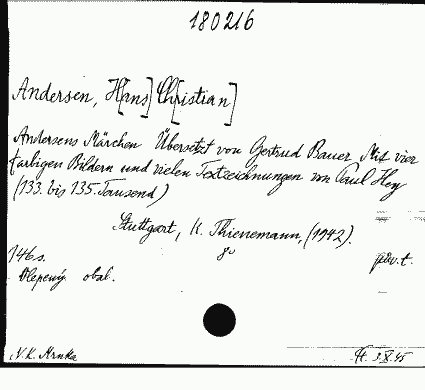 180216
Andersen, H[ans] Ch[ristian]
Andersens Märchen Übersetzt von Gertrud Bauer Mit vier
farbigen Bildern und vielen Textzeichnungen von Paul Hey
(133. bis 135. Tausend)
Stuttgart, K. Thienemann, (1942).
146s. 8° pův. t.
Olepený obal.
N.K. Hrnka